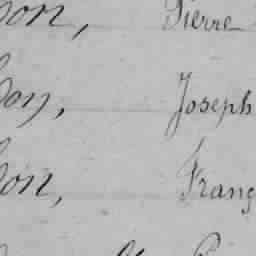 on, Pierre
on, Joseph
on, Franç